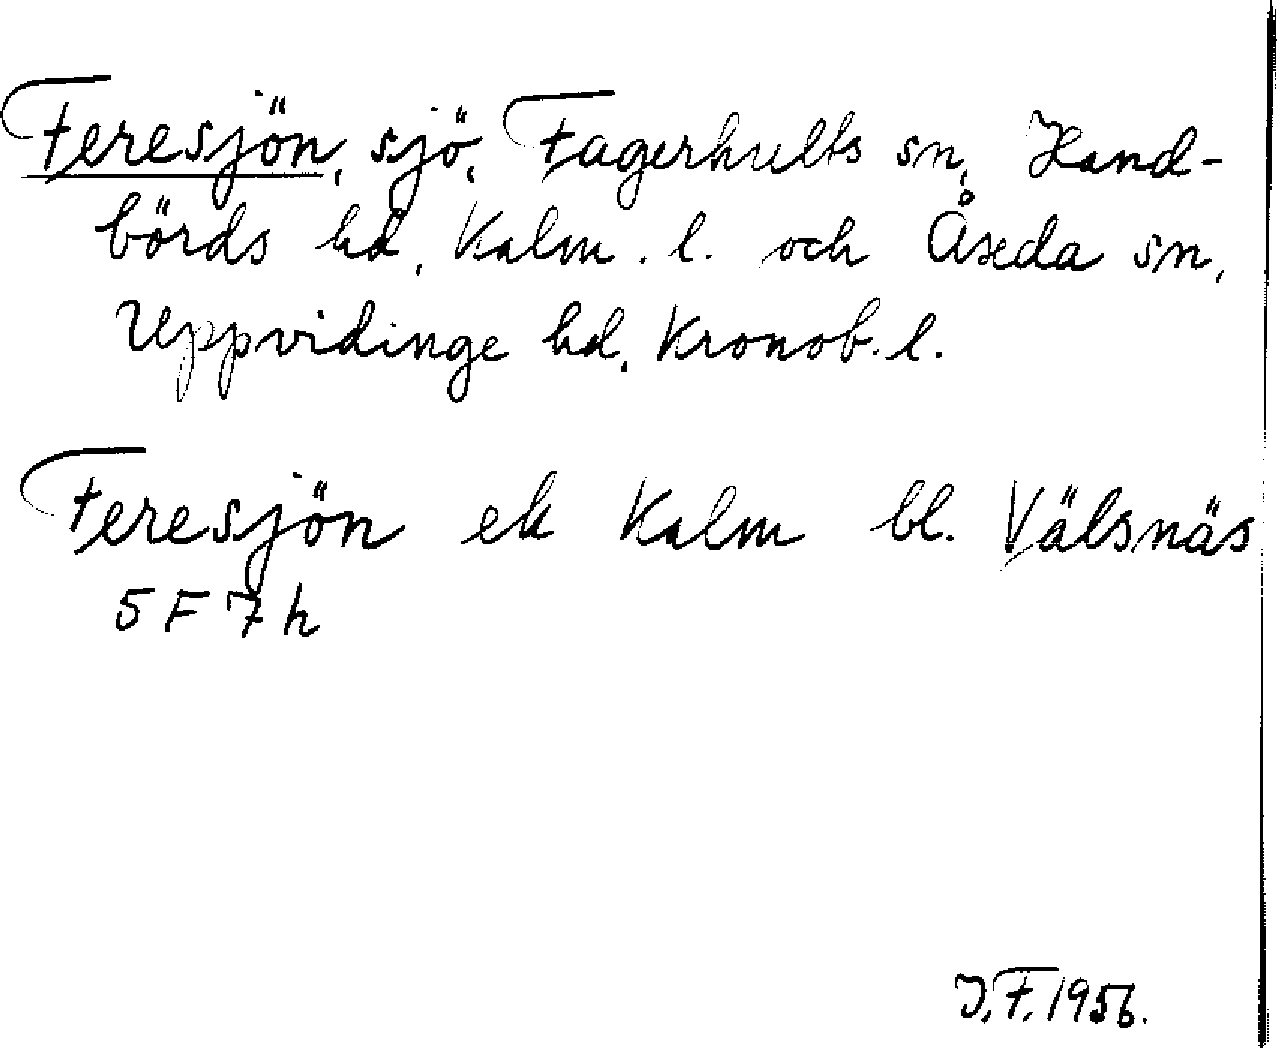 Feresjön, sjö, Fagerhults sn, Hand-
börds hd, Kalm. l. och Åseda sn,
Uppvidinge hd, Kronob. l.
Feresjön ek Kalm bl. Välsnäs
5 F 7 h
J. F. 1956.